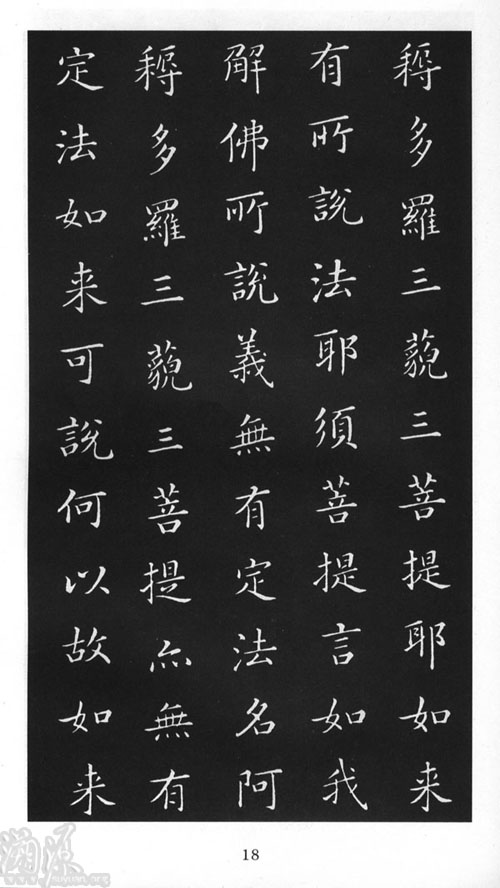 耨多羅三藐三菩提耶如来
有所說法耶須菩提言如我
解佛所說義無有定法名阿
耨多羅三藐三菩提亦無有
定法如来可說何以故如来
18